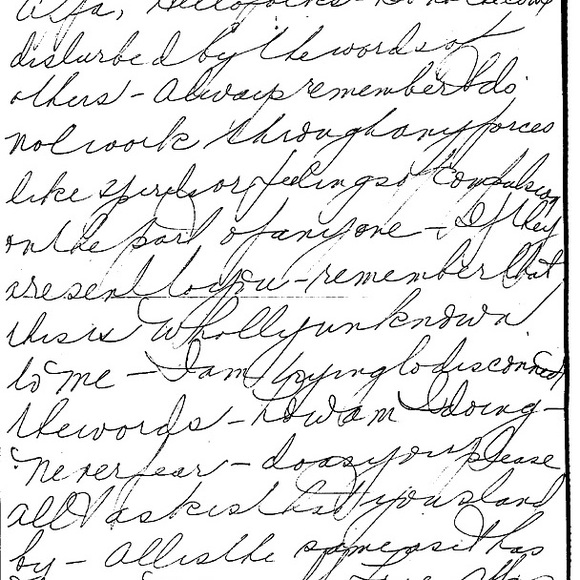 Alfa, Hello folks - Do not become
disturbed by the words of
others - Always remember I do
not work through any forces
like spirits or feelings of compulsion
on the part of anyone - If they
are sent to you - remember that
this is wholly unknown
to me - I am trying to disconnect
the words - How am I doing -
Never fear - do as you please
all I ask is that you stand
by - All is the same as it has